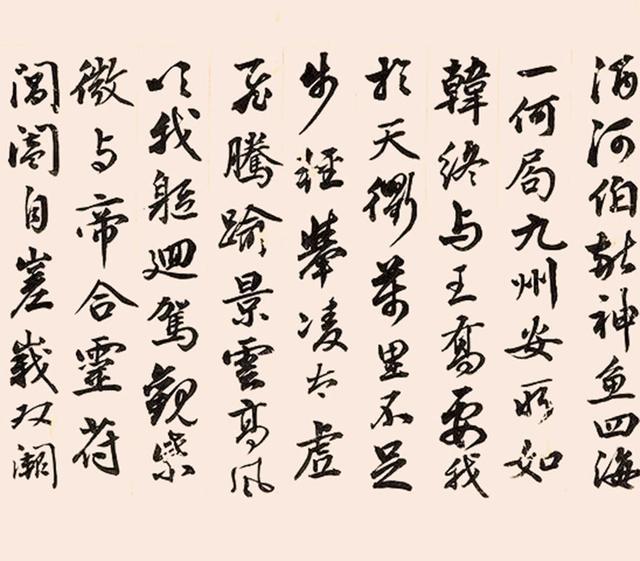 酒河伯献神魚四海
一何局九州安所如
韓終与王喬要我
於天衢萬里不足
步輕舉凌太虛
飛騰踰景雲高風
吹我軀迴駕觀紫
微与帝合靈符
閶闔自嵳峩双闕